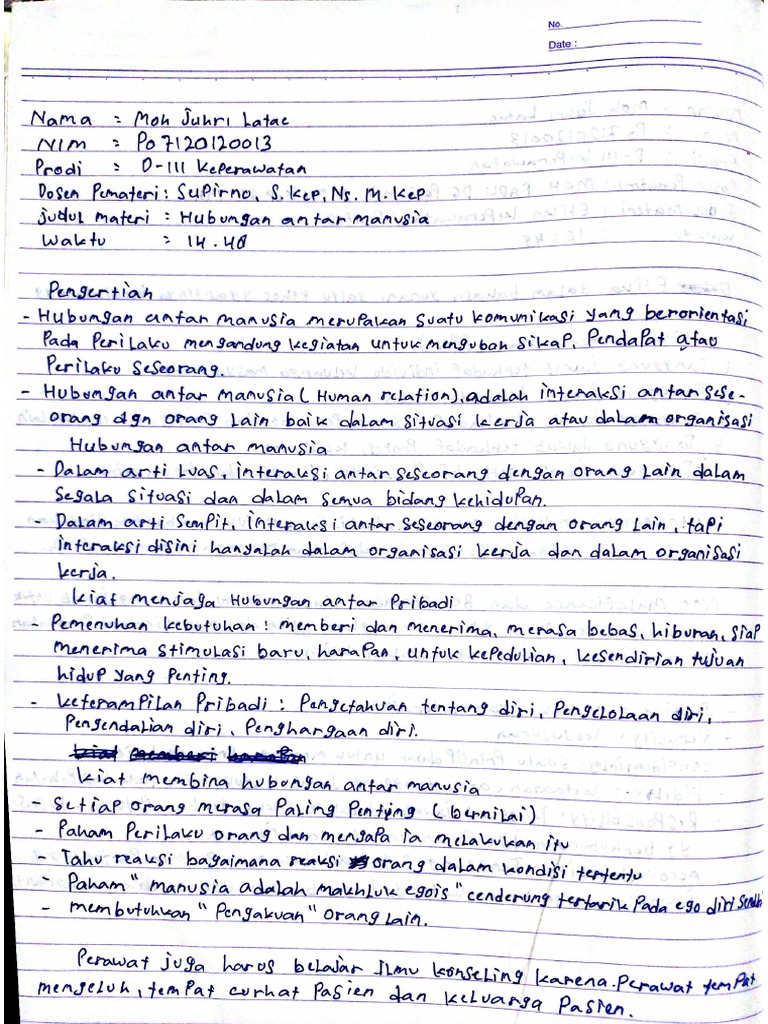 No.
Date :
Nama : Moh Juhri Latae
NIM : Po7120120013
Prodi : D-III Keperawatan
Dosen Pemateri : Supirno, S.Kep, Ns. M.Kep
Judul materi : Hubungan antar manusia
Waktu : 14.40
Pengertian
- Hubungan antar manusia merupakan suatu komunikasi yang berorientasi
pada Perilaku mengandung kegiatan untuk mengubah sikap, Pendapat atau
Perilaku seseorang.
- Hubungan antar manusia (Human relation), adalah interaksi antar sese-
orang dgn orang Lain baik dalam situasi kerja atau dalam organisasi
Hubungan antar manusia
- Dalam arti Luas, interaksi antar seseorang dengan orang Lain dalam
segala situasi dan dalam semua bidang kehidupan.
- Dalam arti sempit, interaksi antar seseorang dengan orang Lain, tapi
interaksi disini hanyalah dalam organisasi kerja dan dalam organisasi
kerja.
Kiat menjaga Hubungan antar Pribadi
- Pemenuhan kebutuhan : memberi dan menerima, merasa bebas, hiburan, siap
menerima stimulasi baru, harapan, untuk kepedulian, kesendirian tujuan
hidup yang penting.
- Keterampilan Pribadi : Pengetahuan tentang diri, Pengelolaan diri,
Pengendalian diri, Penghargaan diri.
Kiat membina hubungan antar manusia
- Setiap orang merasa Paling Penting (bernilai)
- Paham Perilaku orang dan mengapa ia melakukan itu
- Tahu reaksi bagaimana reaksi orang dalam kondisi tertentu
- Paham "manusia adalah makhluk egois" cenderung tertarik pada ego diri sendiri
- membutuhkan "Pengakuan" orang Lain.
Perawat juga harus belajar Ilmu konseling karena Perawat tempat
mengeluh, tempat curhat Pasien dan keluarga Pasien.